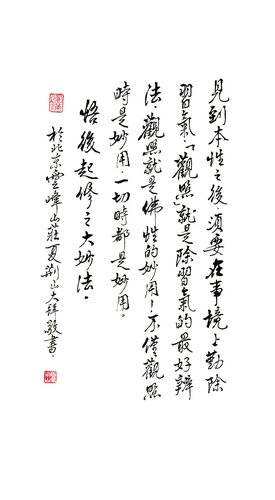 見到本性之後，須要在事境上勤除
習氣，「觀照」就是除習氣的最好辦
法，觀照就是佛性的妙用！不僅觀照
時是妙用，一切時都是妙用。
悟後起修之大妙法。
於北京雲峰山莊夏荆山大拜敬書